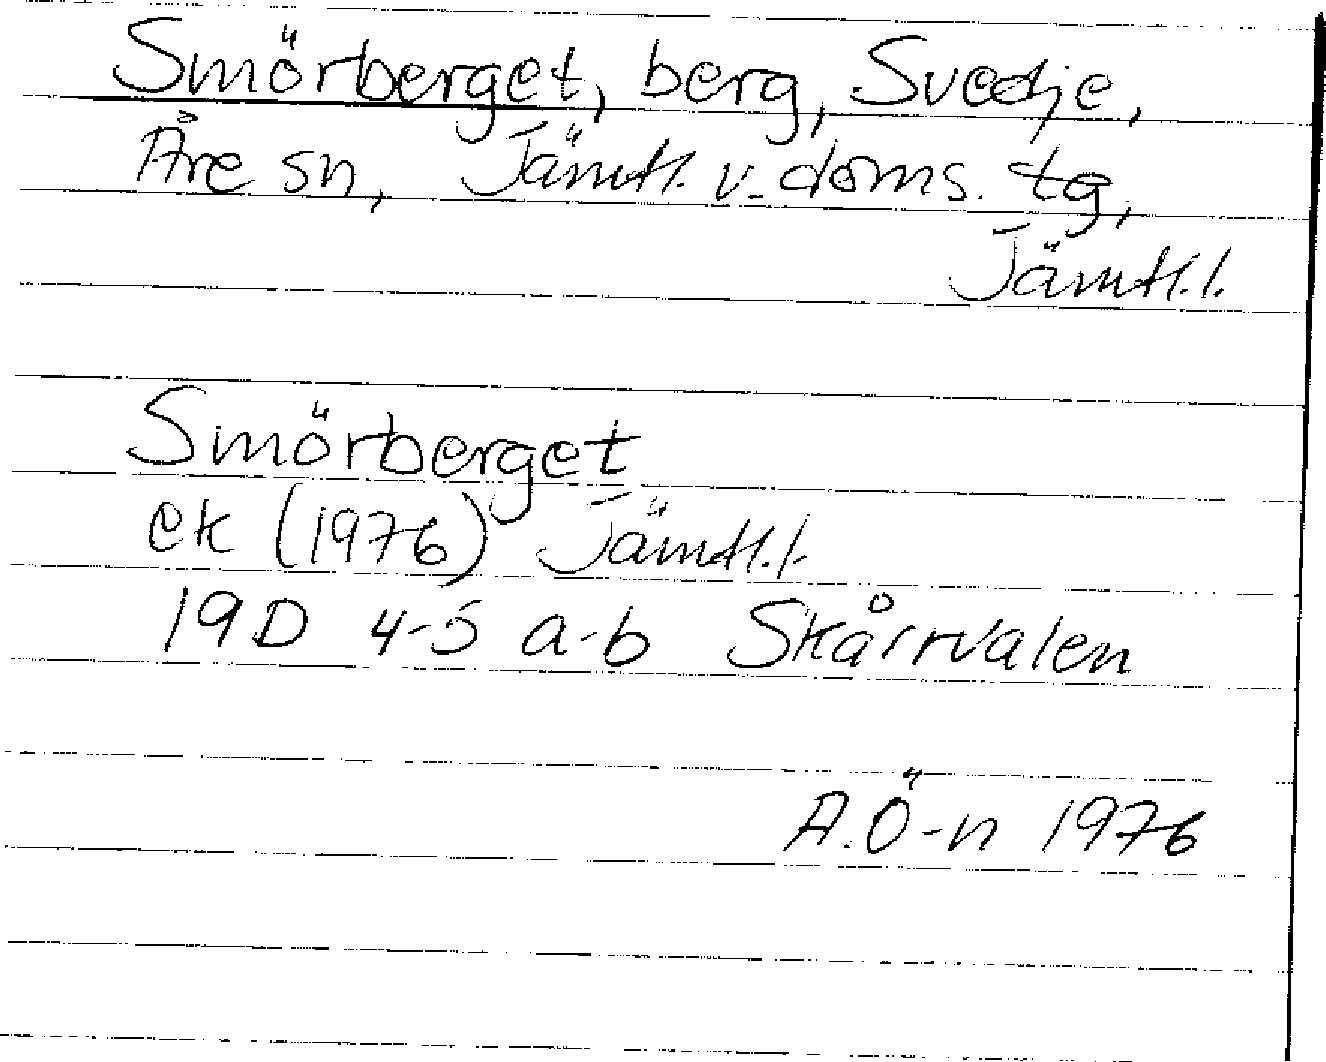 Smörberget, berg, Svedje,
Åre sn, Jämtl. v. doms. tg,
Jämtl. l.
Smörberget
ek (1976) Jämtl. l.
19D 4-5 a-b Skårrvalen
A.Ö-n 1976